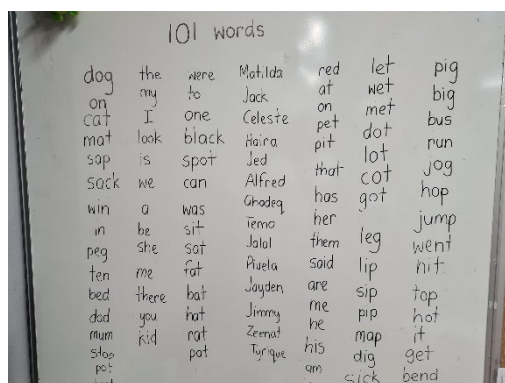 101 words
dog
on
cat
mat
sap
sack
win
in
peg
ten
bed
dad
mum
stop
pot
the
my
I
look
is
we
a
be
she
me
there
you
kid
were
to
one
black
spot
can
was
sit
sat
fat
bat
hat
rat
pat
Matilda
Jack
Celeste
Haira
Jed
Alfred
Ghadeq
Temo
Jalal
Piuela
Jayden
Jimmy
Zeenat
Tyrique
red
at
on
pet
pit
that
has
her
them
said
are
me
he
his
am
let
wet
met
dot
lot
cot
got
leg
lip
sip
pip
map
dig
sick
pig
big
bus
run
jog
hop
jump
went
hit
top
hot
it
get
bend